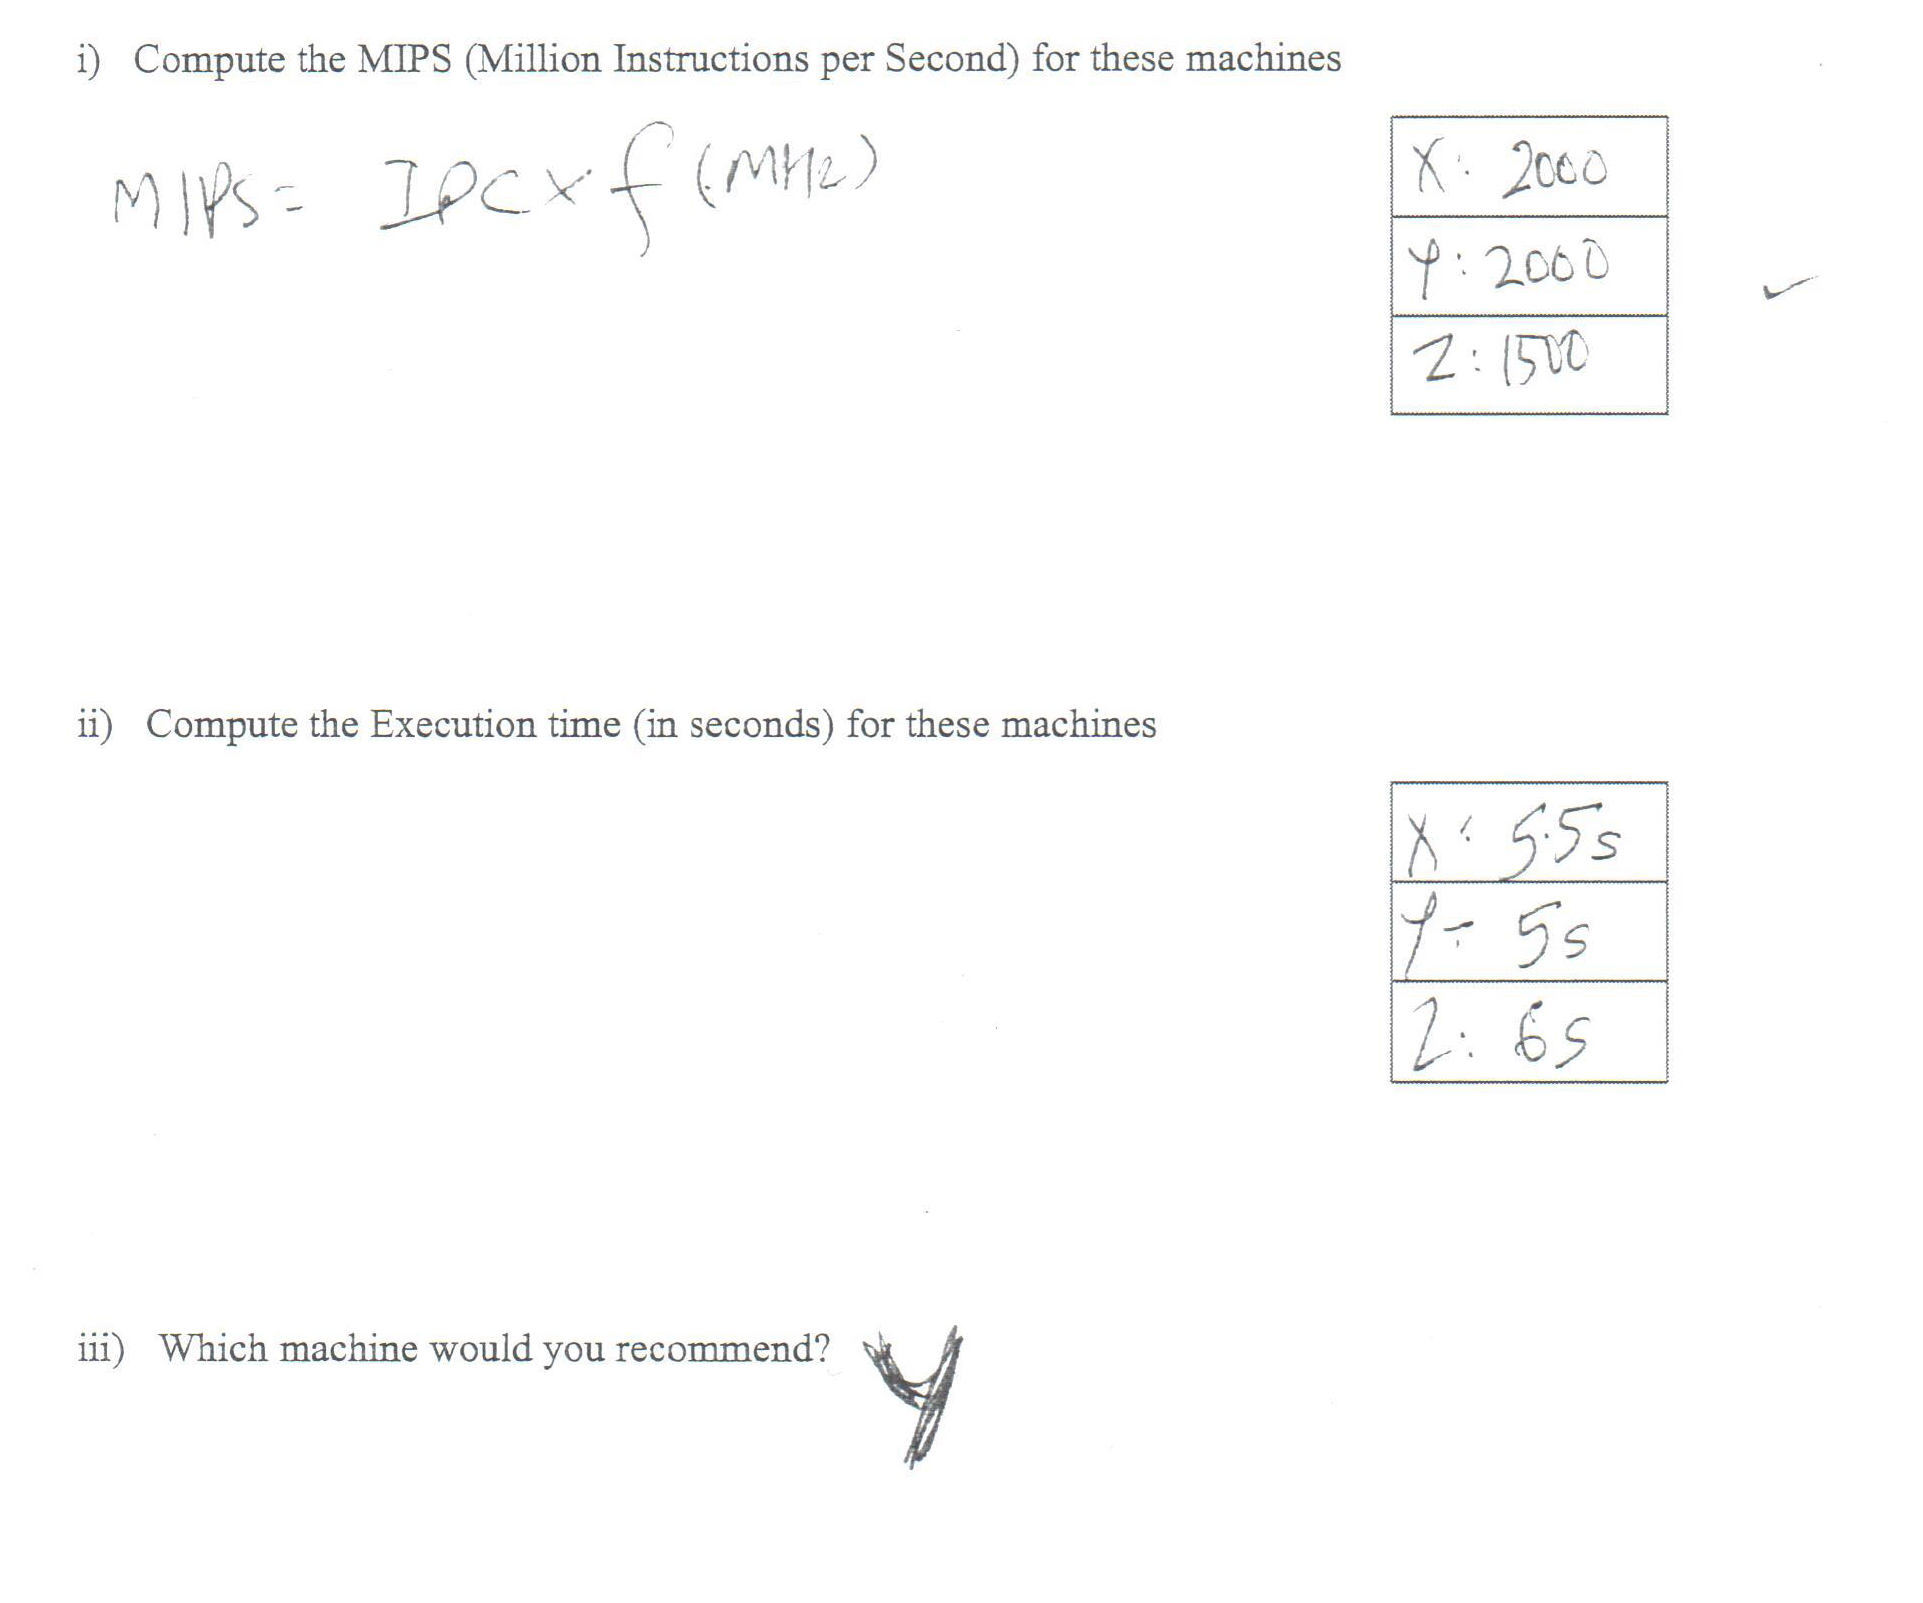 i) Compute the MIPS (Million Instructions per Second) for these machines
MIPS= IPC x f (MHz)
X: 2000
Y: 2000
Z: 1500
ii) Compute the Execution time (in seconds) for these machines
X: 5.5s
Y: 5s
Z: 6s
iii) Which machine would you recommend? Y